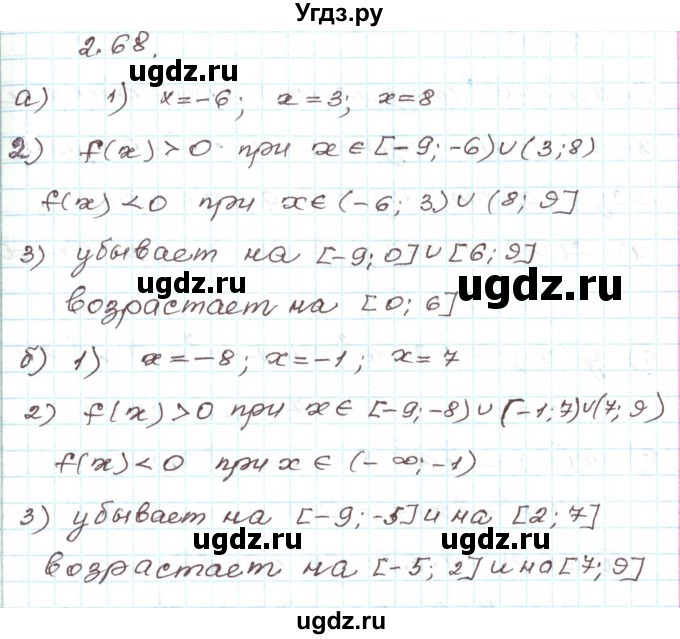 Угдз.ру
2.68.
ugdz.ru
а) 1) x=-6; x=3; x=8
2) f(x)>0 при x∈[-9;-6)∪(3;8)
f(x)<0 при x∈(-6; 3)∪(8; 9]
ugdz.ru
3) убывает на [-9; 0]∪[6; 9]
ugdz.ru ugdz.ru
возрастает на [0; 6]
б) 1) x=-8; x=-1; x=7
ugdz.ru
2) f(x)>0 при x∈[-9;-8)∪(-1;7)∪(7; 9)
f(x)<0 при x∈(-∞;-1)
3) убывает на [-9; -5] и на [2; 7]
ugdz.ru ugdz.ru
возрастает на [-5; 2] и на [7; 9]
ugdz.ru